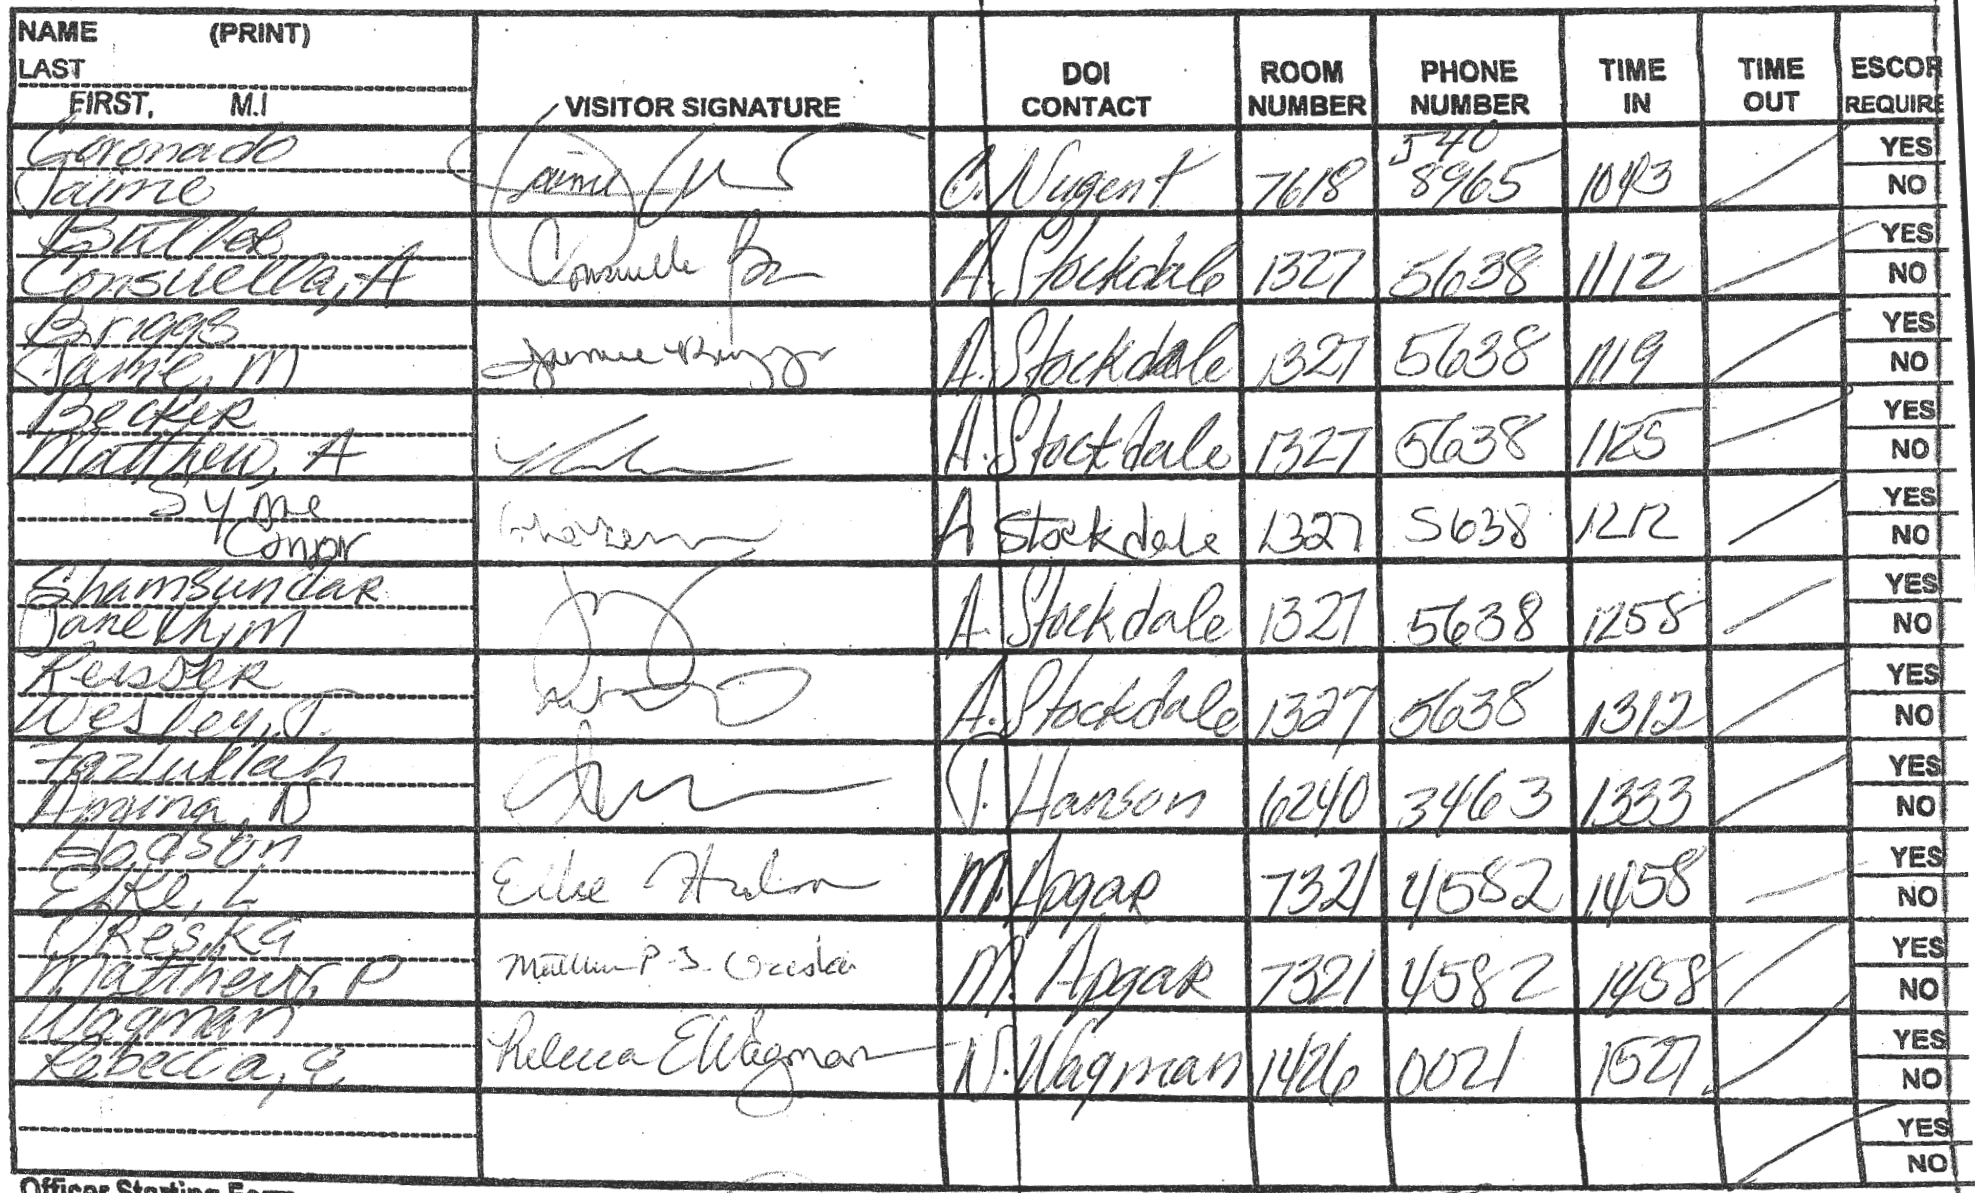 NAME (PRINT)
LAST
FIRST, M.I VISITOR SIGNATURE DOI CONTACT ROOM NUMBER PHONE NUMBER TIME IN TIME OUT ESCOR REQUIRE
Coronado 540 YES
Jaime Jaime C. Nugent 7618 8965 1043 NO
YES
Consuella, A Consuella A. Stockdale 1327 5638 1112 NO
Briggs YES
Jamie, M Jamie Briggs A. Stockdale 1327 5638 1119 NO
Becker YES
Matthew, A A. Stockdale 1327 5638 1125 NO
Syme YES
Conor A Stockdale 1327 5638 1212 NO
Shamsundar YES
Janekh, M A. Stockdale 1327 5638 1258 NO
Reisser YES
Wesley, J. A. Stockdale 1327 5638 1312 NO
Fazlullah YES
J. Hanson 6240 3463 1333 NO
Hodson YES
Elke, L Elke Hodson M. Apgar 7321 4582 1458 NO
Oreska YES
Matthew, P Matthew P. J. Oreska M. Apgar 7321 4582 1458 NO
Wagman YES
Rebecca, E Rebecca E Wagman N. Wagman 1426 0021 1527 NO
YES
NO